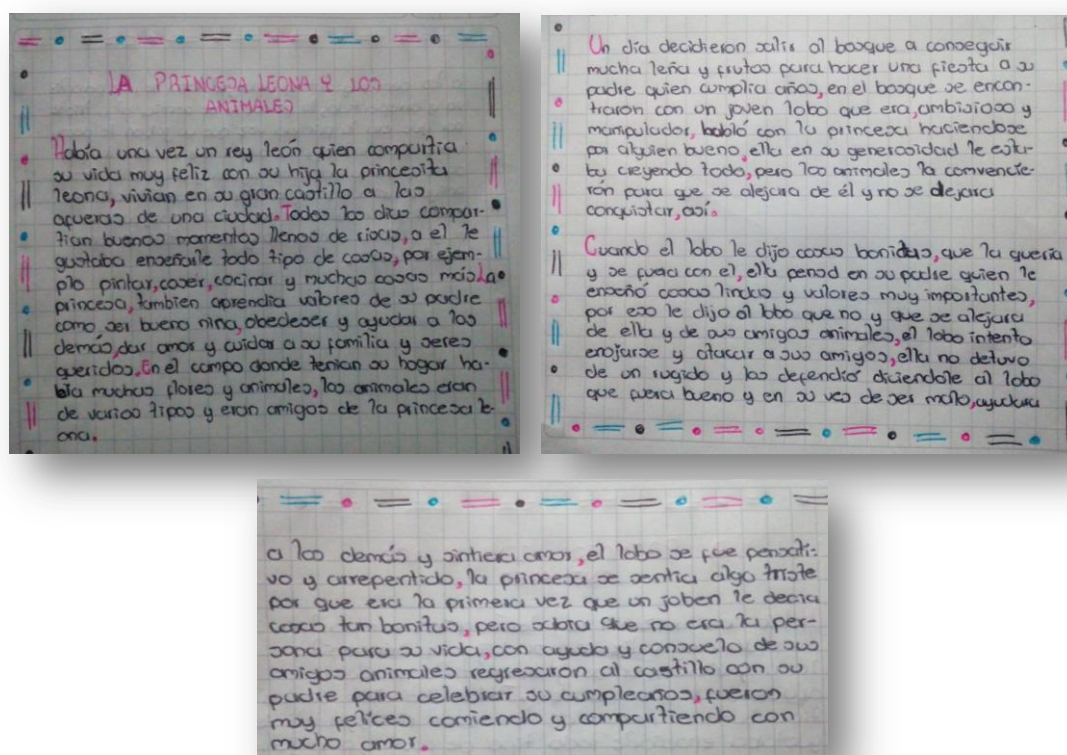 LA PRINCESA LEONA Y LOS
ANIMALES
Había una vez un rey león quien compartia
su vida muy feliz con su hija la princesita
leona, vivian en su gran castillo a las
afueras de una ciudad. Todos los dias compar-
tian buenos momentos llenos de risas, a el le
gustaba enseñarle todo tipo de cosas, por ejem-
plo pintar, coser, cocinar y muchas cosas más. La
princesa, tambien aprendia valores de su padre
como, ser buena niña, obedeser y ayudar a los
demás, dar amor y cuidar a su familia y seres
queridos. En el campo donde tenian su hogar ha-
bía muchas flores y animales, los animales eran
de varios tipos y eran amigos de la princesa le-
ona.
Un día decidieron salir al bosque a conseguir
mucha leña y frutas para hacer una fiesta a su
padre quien cumplia años, en el bosque se encon-
traron con un joven lobo que era, ambisioso y
manipulador, habló con la princesa haciendose
por alguien bueno, ella en su generosidad le esta-
ba creyendo todo, pero los animales la comvencie-
rón para que se alejara de él y no se dejara
conquistar, así.
Cuando el lobo le dijo cosas bonitas, que la quería
y se fuera con el, ella pensó en su padre quien le
enseñó cosas lindas y valores muy importantes,
por eso le dijo al lobo que no y que se alejara
de ella y de sus amigos animales, el lobo intento
enojarse y atacar a sus amigos, ella no detuvo
de un rugido y los defendió diciendole al lobo
que fuera bueno y en su ves de ser malo, ayudara
a los demás y sintiera amor, el lobo se fue pensati-
vo y arrepentido, la princesa se sentia algo triste
por que era la primera vez que un joben le decia
cosas tan bonitas, pero sabia que no era la per-
sona para su vida, con ayuda y consuelo de sus
amigos animales regresaron al castillo con su
padre para celebrar su cumpleaños, fueron
muy felices comiendo y compartiendo con
mucho amor.